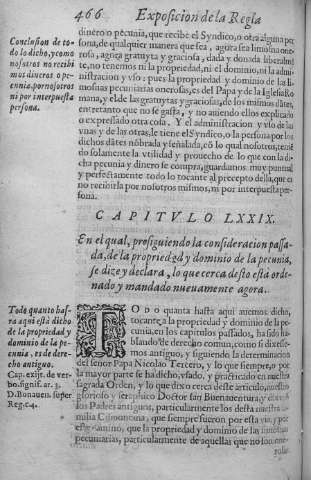 466 Exposicion de la Regla
Conclusion de to-
do lo dicho, y como
nosotros no recibi
mos dineros o pe-
cunia, por nosotros
ni por interpuesta
persona.
dinero o pecunia, que recibe el Syndico, o otra alguna per
sona, de qualquier manera que sea, agora sea limosna one-
rosa, agora gratuyta y graciosa, dada y donada liberalmē
te, no tenemos ni la propriedad, ni el dominio, ni la admi-
nistracion y vso: pues la propriedad y dominio de las li-
mosnas pecuniarias onerosas, es del Papa y de la Iglesia Ro
mana, y el de las gratuytas y graciosas, de los mismos dātes,
entretanto que no se gasta, y no auiendo ellos explicado
o expressado otra cosa. Y el administracion y vso de las
vnas y de las otras, le tiene el Syndico, o la persona por los
dichos dātes nōbrada y señalada, cō lo qual nosotros, tenē
do solamente la vtilidad y prouecho de lo que con la di-
cha pecunia y dinero se compra, guardamos muy puntual
y perfectamente todo lo tocante al precepto della, que es
no recibirla por nosotros mismos, ni por interpuesta per-
sona.
CAPITVLO LXXIX.
En el qual, prosiguiendo la consideracion passa-
da, de la propriedad y dominio de la pecunia,
se dize y declara, lo que cerca desto està orde-
nado y mandado nueuamente agora.
Todo quanto has-
ta aqui està dicho
de la propriedad y
dominio de la pe-
cunia, es de dere-
cho antiguo.
Cap. exijt. de ver-
bo. signif. ar. 3.
D. Bonauen. super
Reg. c. 4.
TODO quanta hasta aqui auemos dicho,
tocante a la propriedad y dominio de la pe-
cunia, en los capitulos passados, ha sido ha-
blando de derecho comun, como si dixesse-
mos antiguo, y siguiendo la determinacion
del señor Papa Nicolao Tercero, y lo que siempre, o por
la mayor parte se ha dicho, vsado, y practicado en nuestra
sagrada Orden, y lo que dixo cerca deste articulo, nuestro
glorioso y seraphico Doctor san Buenauentura, y dixeron
los Padres antiguos, particularmente los desta nuestra
milia Cismontana, que siempre fueron por esta via, y por
este camino, que la propriedad y dominio de las limosnas
pecuniarias, particularmente de aquellas que no son one-
rosas